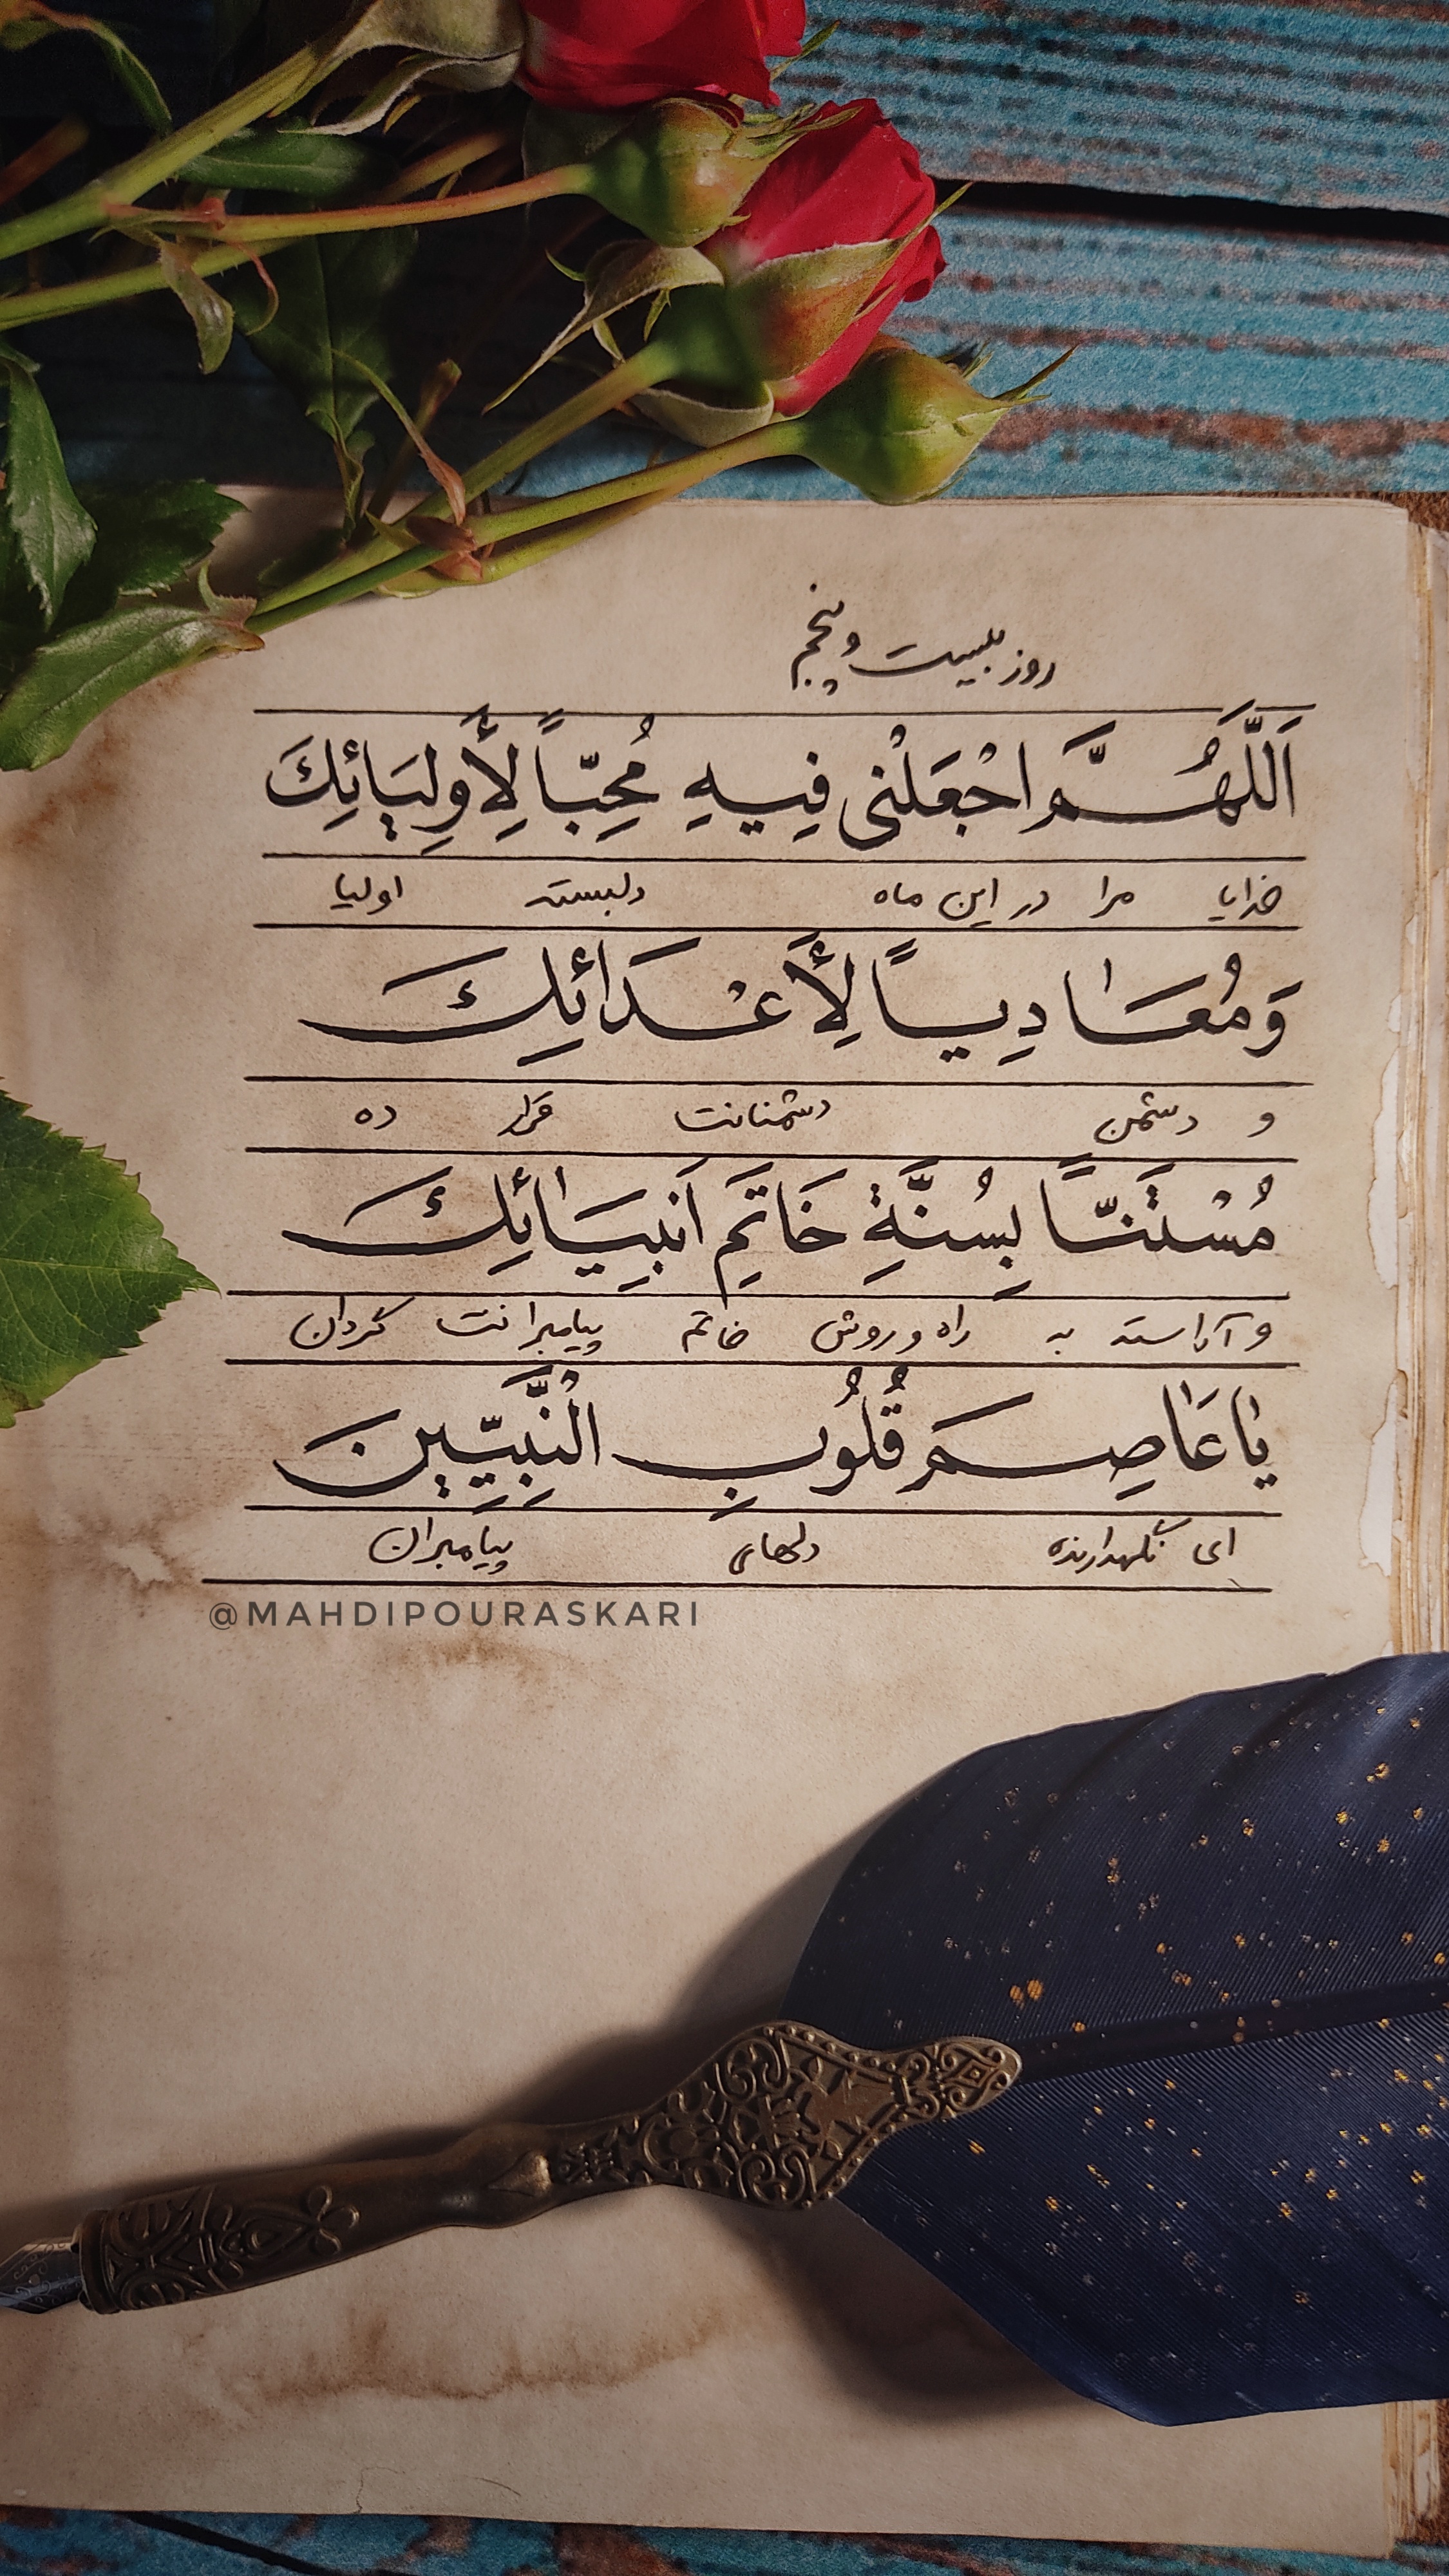 روز بیست و پنجم
اَللَّهُمَّ اجْعَلْنی فِیهِ مُحِبّاً لِأَولِیَائِكَ
خدایا مرا در این ماه دلبسته اولیا
وَ مُعَادِیاً لِأَعْدَائِكَ
و دشمن دشمنانت قرار ده
مُسْتَنّاً بِسُنَّةِ خَاتَمِ اَنبِیَائِكَ
و آراسته به راه و روش خاتم پیامبرانت گردان
یَا عَاصِمَ قُلُوبِ النَّبِیِّینَ
ای نگهدارنده دلهای پیامبران
@MAHDIPOURASKARI